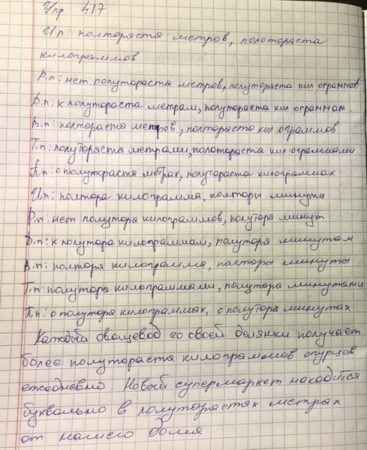 Упр 417
И.п: полтораста метров, полтораста
килограммов
Р.п: нет полутораста метров, полутораста килограммов
Д.п: к полутораста метрам, полутораста килограммам.
В.п: полтораста метров, полтораста килограммов
Т.п: полутораста метрами, полутораста килограммами
П.п: о полутораста метрах, полутораста килограммах
И.п: полтора килограмма, полторы минуты
Р.п: нет полутора килограммов, полутора минут
Д.п: к полутора килограммам, полутора минутам
В.п: полтора килограмма, полторы минуты
Т.п: полутора килограммами, полутора минутами
П.п: о полутора килограммах, о полутора минутах
Каждый овощевод со своей делянки получает
более полутораста килограммов огурцов
ежедневно. Новый супермаркет находится
буквально в полуторастах метрах
от нашего дома